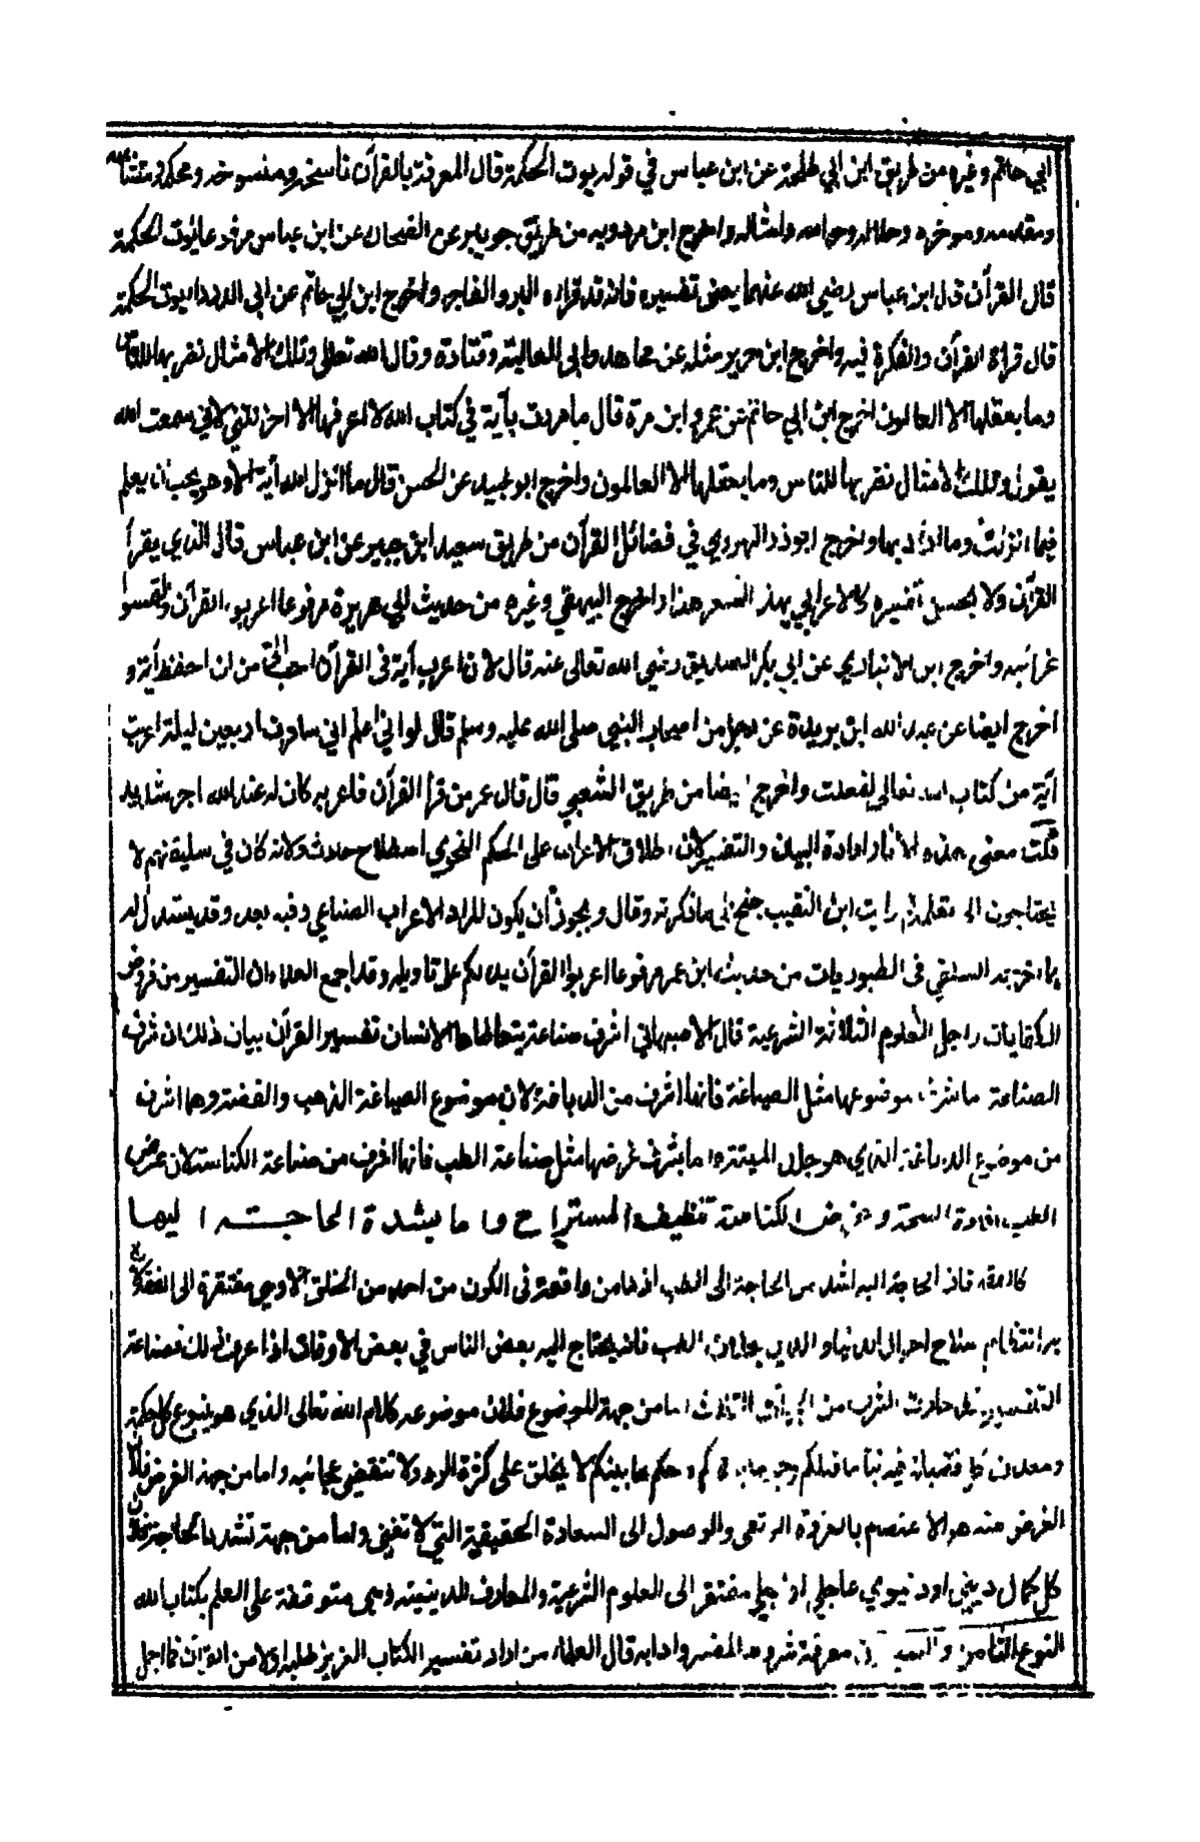 ابي حاتم وغيره من طريق ابن ابي طلحة عن ابن عباس في قوله يوت الحكمة قال المعرفة بالقرآن ناسخه ومنسوخه ومحكمه ومتشابهه
ومقدمه وموخره وحلاله وحرامه وامثاله واخرج ابن مردويه من طريق جويبر عن الضحاك عن ابن عباس مرفوعا يوت الحكمة
قال القرآن قال ابن عباس رضي الله عنهما يعنى تفسيره فانه قد قراه البر والفاجر واخرج ابن ابي حاتم عن ابى الدرداء يوت الحكمة
قال قراة القرآن والفكرة فيه واخرج ابن جرير مثله عن مجاهد وابى العالية وقتادة وقال الله تعالى وتلك الامثال نضربها للناس
وما يعقلها الا العالمون اخرج ابن ابي حاتم عن عمرو ابن مرة قال ما مررت بآية في كتاب الله لا اعرفها الا احزنتني لاني سمعت الله
يقول وتلك الامثال نضربها للناس وما يعقلها الا العالمون واخرج ابو عبيد عن الحسن قال ما انزل الله آية الا وهو يحب ان يعلم
فيما انزلت وما اراد بها واخرج ابوذر الهروي في فضائل القرآن من طريق سعيد ابن جبير عن ابن عباس قال الذي يقرأ
القرآن ولا يحسن تفسيره كالاعرابي يهذ الشعر هذا واخرج البيهقي وغيره من حديث ابي هريرة مرفوعا اعربوا القرآن والتمسوا
غرائبه واخرج ابن الانباري عن ابي بكر الصديق رضي الله تعالى عنه قال لان اعرب آية فى القرآن احب الي من ان احفظ آية و
اخرج ايضا عن عبد الله ابن بريدة عن رجل من اصحاب النبي صلى الله عليه وسلم قال لو اني اعلم اني سافرت اربعين ليلة اعربت
آية من كتاب الله تعالى لفعلت واخرج ايضا من طريق الشعبي قال قال عمر من قرأ القرآن فاعربه كان له عند الله اجر شهيد
قلت معنى هذه الاثار ارادة البيان والتفسير لان اطلاق الاعراب على الحكم النحوي اصطلاح حادث ولانه كان في سليقتهم لا
يحتاجون الى تعلمه ثم رايت ابن النقيب جنح الى ما ذكرته وقال ويجوز أن يكون المراد الاعراب الصناعي وفيه بعد وقد يستدل له
بما اخرجه السلفي فى الطيوريات من حديث ابن عمر مرفوعا اعربوا القرآن يدلكم على تاويله وقد اجمع العلماء ان التفسير من فروض
الكفايات واجل العلوم الثلاثة الشرعية قال الاصبهاني اشرف صناعة يتعاطاها الانسان تفسير القرآن بيان ذلك ان شرف
الصناعة اما بشرف موضوعها مثل الصياغة فانها اشرف من الدباغة لان موضوع الصياغة الذهب والفضة وهما اشرف
من موضوع الدباغة الذي هو جلد الميتة واما بشرف غرضها مثل صناعة الطب فانها اشرف من صناعة الكناسة لان غرض
الطب افادة الصحة وغرض الكناسة تنظيف المستراح واما بشدة الحاجة اليها
كالفقه فان الحاجة اليه اشد من الحاجة الى الطب اذ ما من واقعة فى الكون من احد من الخلق الا وهي مفتقرة الى الفقه لان
به انتظام صلاح احوال الدنيا والدين بخلاف الطب فانه يحتاج اليه بعض الناس في بعض الاوقات اذا عرف ذلك فصناعة
التفسير قد حازت الشرف من الجهات الثلاث اما من جهة الموضوع فلان موضوعه كلام الله تعالى الذي هو ينبوع كل حكمة
ومعدن كل فضيلة فيه نبأ ما قبلكم وخبر ما بعدكم وحكم ما بينكم لا يخلق على كثرة الرد ولا تنقضي عجائبه واما من جهة الغرض فلان
الغرض منه هو الاعتصام بالعروة الوثقى والوصول الى السعادة الحقيقية التي لا تفنى واما من جهة شدة الحاجة فلان
كل كمال ديني او دنيوي عاجلي او اجلي مفتقر الى العلوم الشرعية والمعارف الدينية وهى متوقفة على العلم بكتاب الله
النوع الثامن والسبعون فى معرفة شروط المفسر وادابه قال العلماء من اراد تفسير الكتاب العزيز طلبه اولا من القرآن فما اجمل